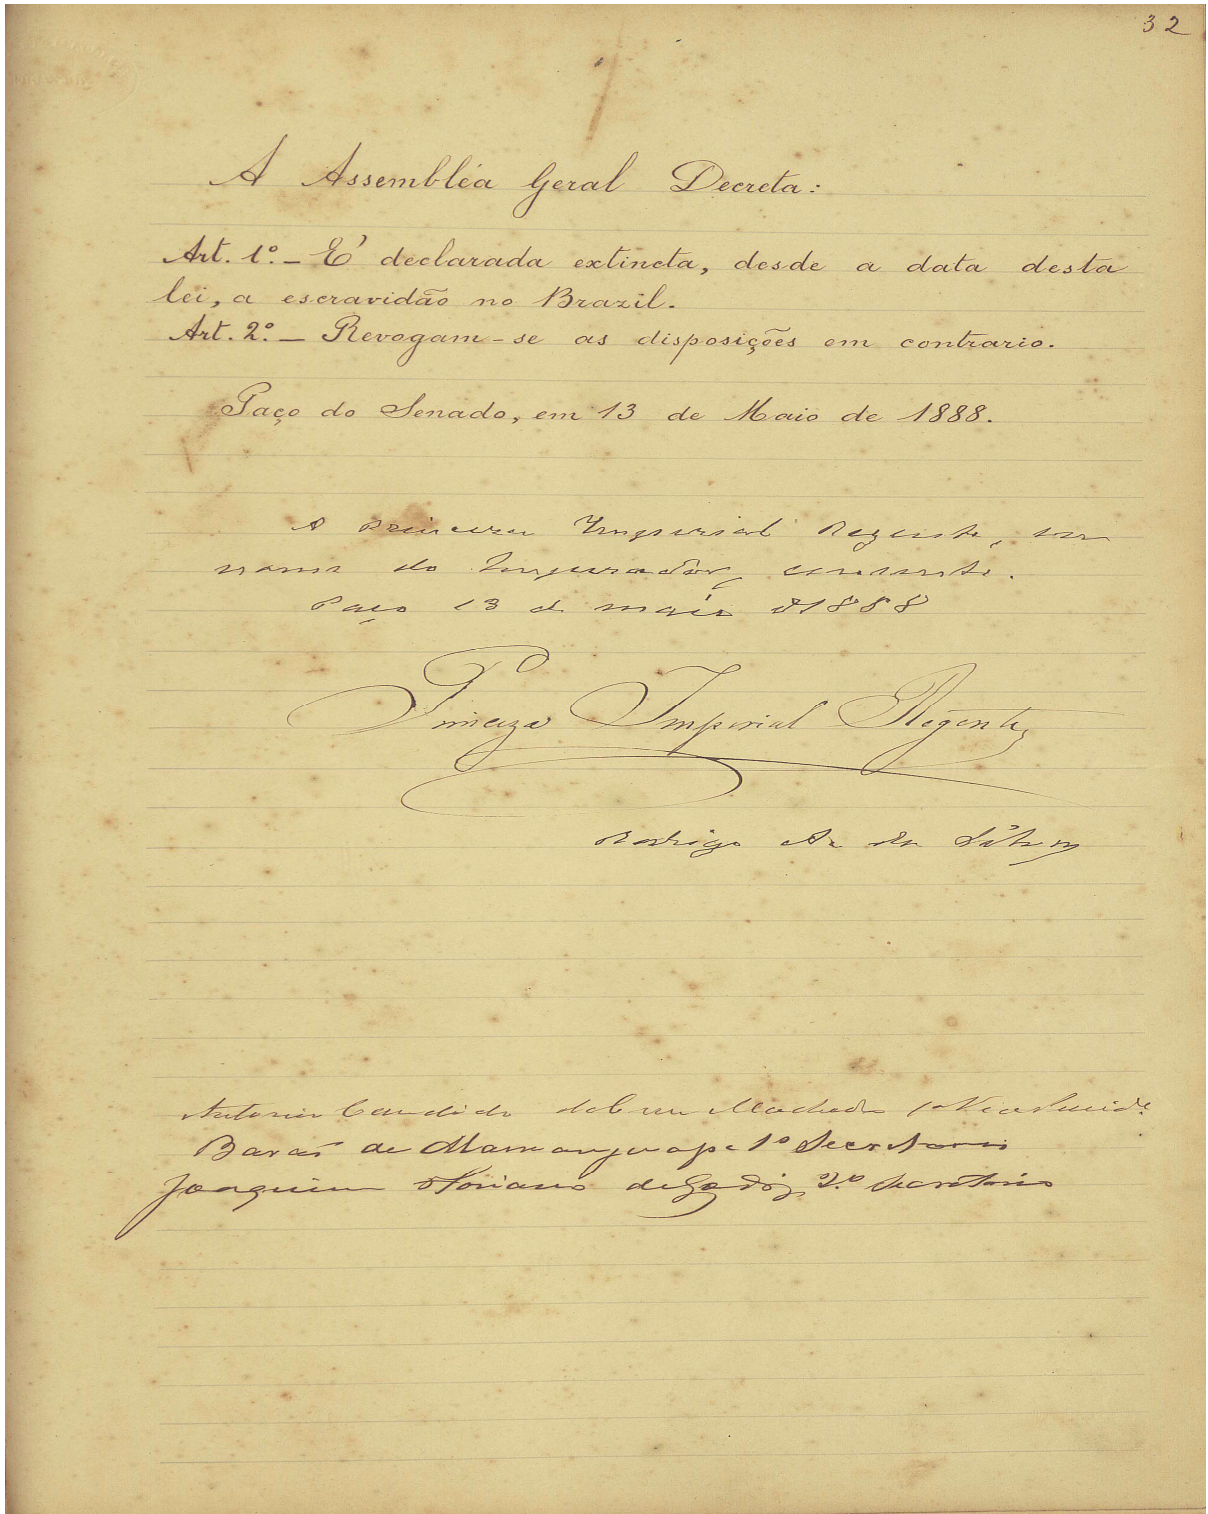 32
A Assembléa Geral Decreta:
Art. 1º. — E' declarada extincta, desde a data desta
lei, a escravidão no Brazil.
Art. 2º. — Revogam-se as disposições em contrario.
Paço do Senado, em 13 de Maio de 1888.
A Princeza Imperial Regente, em
nome do Imperador, consente.
Paço 13 de maio d 1888
Princeza Imperial Regente
Rodrigo A. da Silva
Antonio Candido da Cruz Machado 1º Vice Presid.e
Barão de Mamanguape 1º Secretario
Joaquim Floriano de Godoy, 2.º Secretario